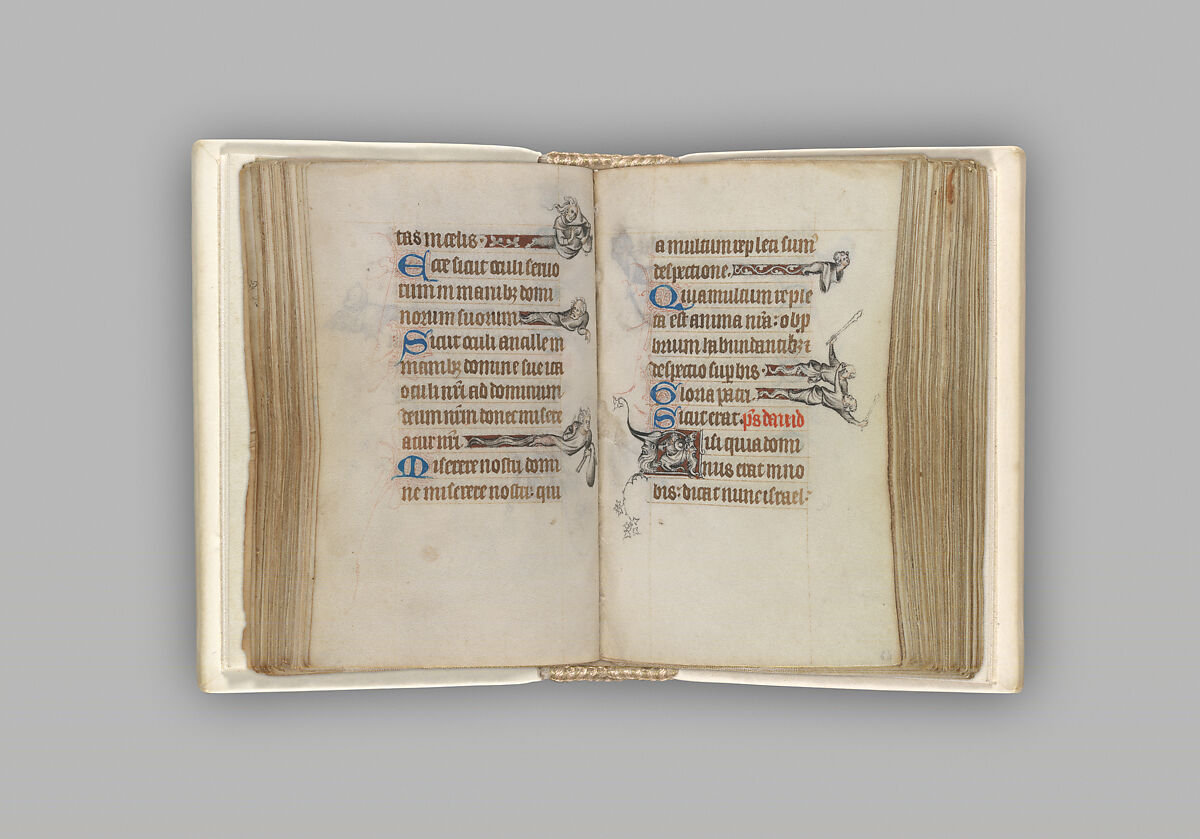 tas in celis ·
Ecce sicut oculi seruo
rum in manibꝫ domi
norum suorum
Sicut oculi ancille in
manibꝫ domine sue ita
oculi nr̄i ad dominum
deum nr̄m donec misere
atur nr̄i
Miserere nostri domi
ne miserere nostri: qui
a multum repleti sumꝰ
despectione.
Quia multum reple
ta est anima nr̄a: obp
brium habundantibꝫ ⁊
despectio supbis ·
Gloria patri.
Sicut erat. ps̄ dauid
Nisi quia domi
nus erat in no
bis: dicat nunc israel: